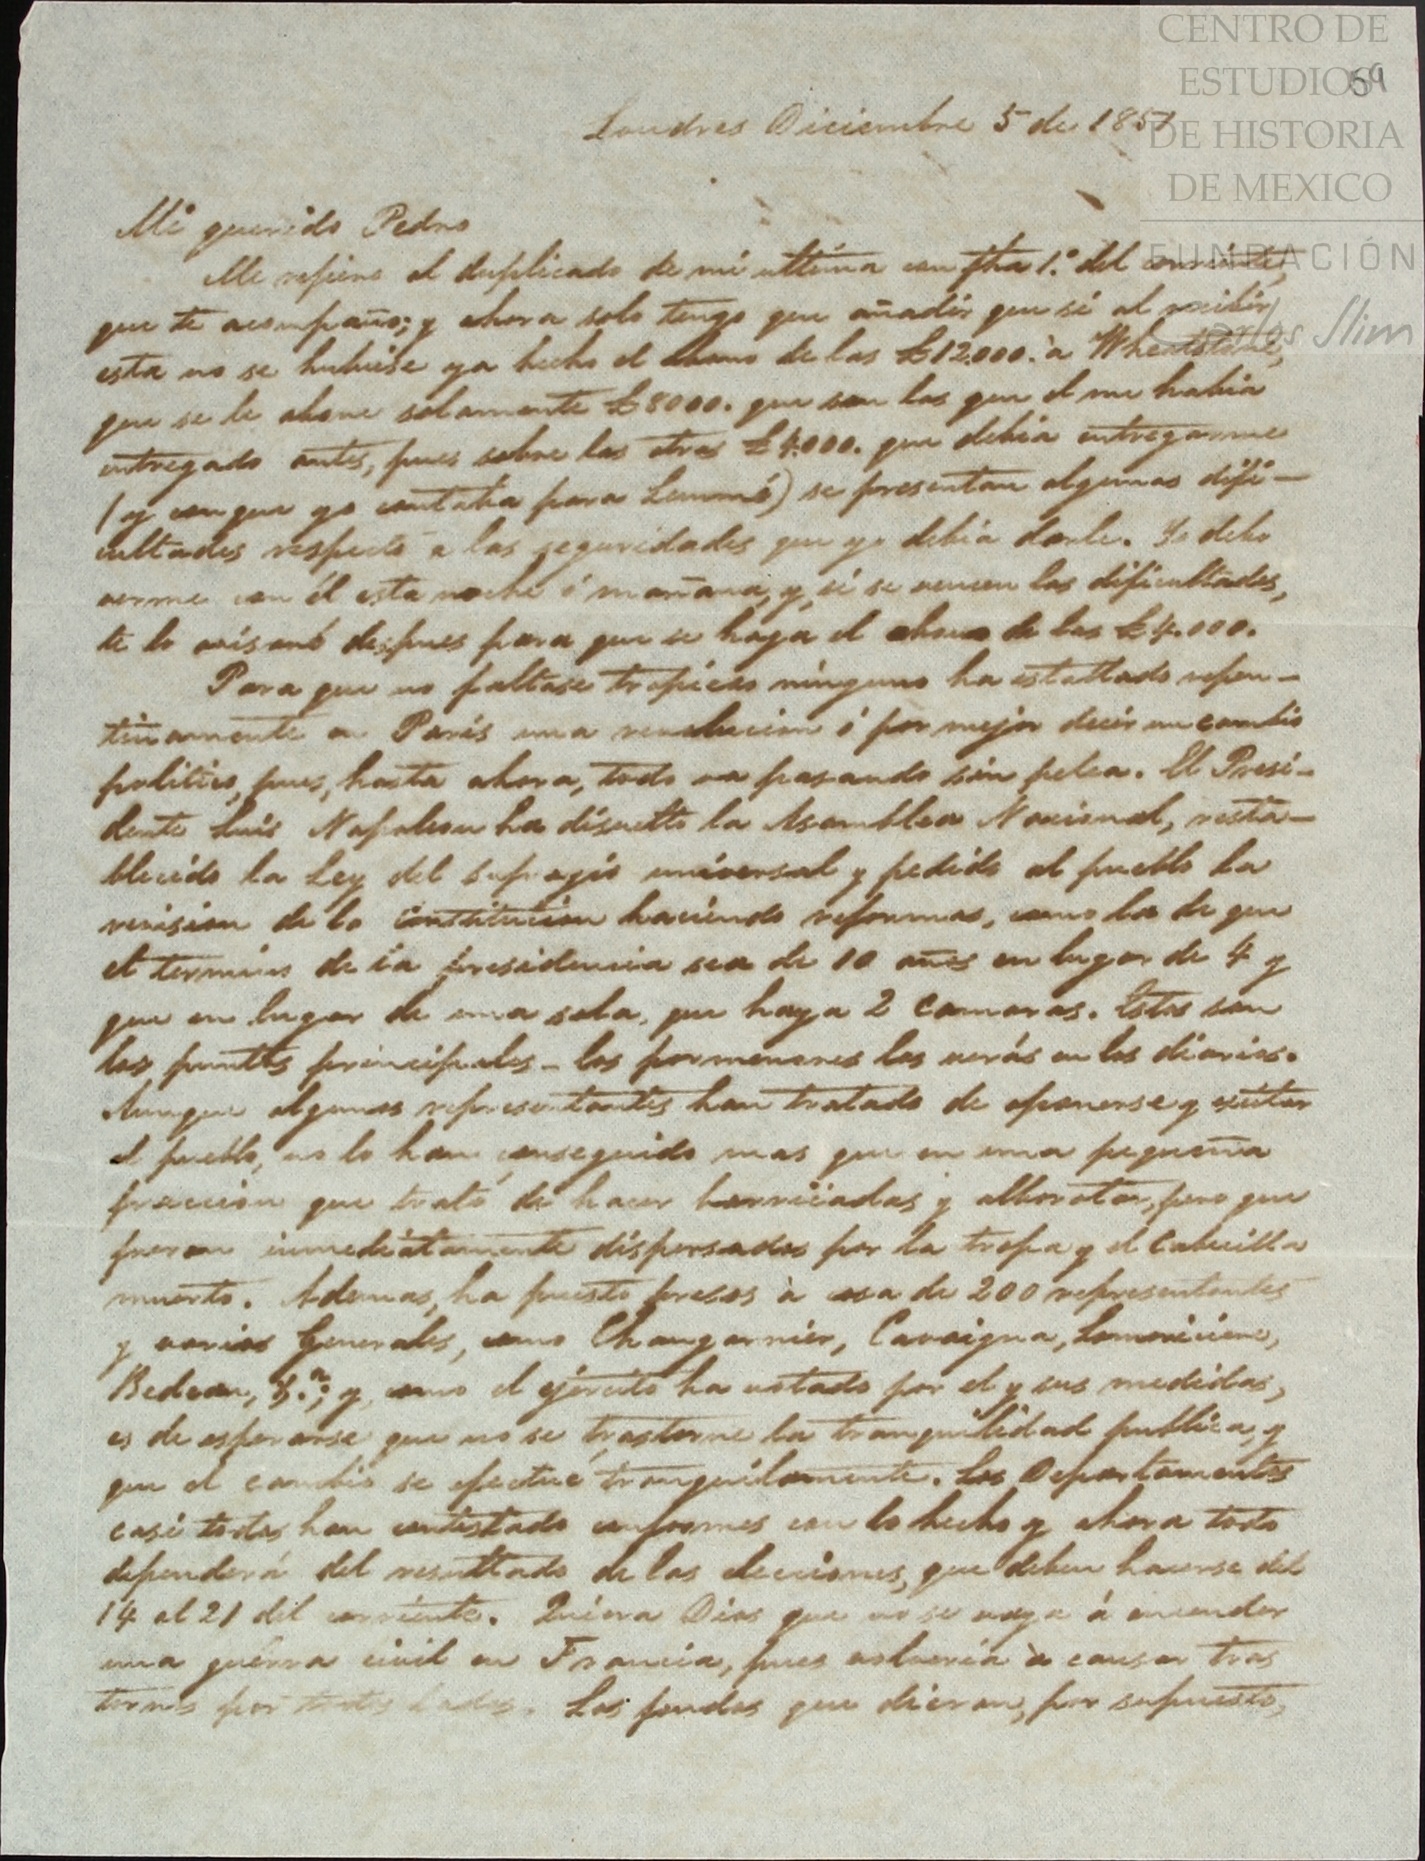 CENTRO DE
ESTUDIOS
DE HISTORIA
DE MEXICO
FUNDACIÓN
Carlos Slim
59
Londres Diciembre 5 de 1851
Mi querido Pedro
Me refiero al duplicado de mi ultima con fha 1.º del corriente,
que te acompaño; y ahora solo tengo que añadir que si al recibir
esta no se hubiese ya hecho el abono de las £12.000. à Wheatstone,
que se le abone solamente £8000. que son las que el me habia
entregado antes, pues sobre las otras £4.000. que debia entregarme
(y con que yo contaba para Lemmé) se presentan algunas difi-
cultades respecto a las seguridades que yo debia darle. Yo debo
verme con él esta noche ó mañana, y, si se vencen las dificultades,
te lo avisaré despues para que se haga el abono de las £4.000.
Para que no faltase tropiezo ninguno ha estallado repen-
tinamente en Paris una revolucion ó por mejor decir un cambio
politico, pues, hasta ahora, todo va pasando sin pelea. El Presi-
dente Luis Napoleon ha disuelto la Asamblea Nacional, resta-
blecido la Ley del sufragio universal y pedido al pueblo la
revision de la constitucion haciendo reformas, como la de que
el termino de la presidencia sea de 10 años en lugar de 4 y
que en lugar de una sola, que haya 2 camaras. Estos son
los puntos principales - los pormenores los verás en los diarios.
Aunque algunos representantes han tratado de oponerse y exitar
el pueblo, no lo han conseguido mas que en una pequeña
fraccion que trató de hacer barricadas y alborotar, pero que
fueron inmediatamente dispersados por la tropa y el cabecilla
muerto. Ademas, ha puesto presos à cosa de 200 representantes
y varios Generales, como Changarnier, Cavaigna, Lamoriciere,
Bedeau, &.ª; y, como el ejército ha votado por el y sus medidas,
es de esperarse que no se trastorne la tranquilidad publica, y
que el cambio se efectué tranquilamente. Los Departamentos
casi todos han contestado conformes con lo hecho y ahora todo
dependerá del resultado de las elecciones, que deben hacerse del
14 al 21 del corriente. Quiera Dios que no se vaya á encender
una guerra civil en Francia, pues volveria à causar tras
tornos por todos lados. Los fondos que dieron, por supuesto,